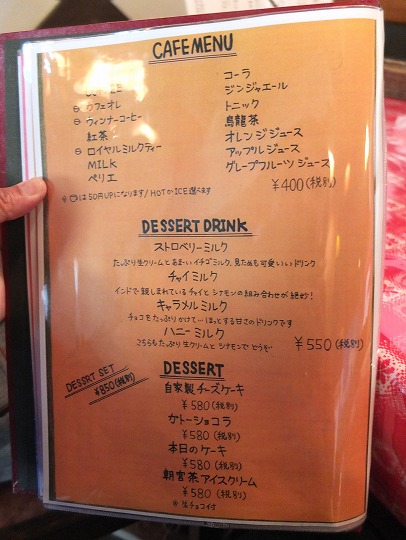 CAFE MENU
カフェオレ
ウィンナーコーヒー
紅茶
ロイヤルミルクティー
MILK
ペリエ
コーラ
ジンジャエール
トニック
烏龍茶
オレンジジュース
アップルジュース
グレープフルーツジュース
¥400(税別)
は50円UPになります/HOTかICE選べます
DESSERT DRINK
ストロベリーミルク
たっぷり生クリームとあま〜いイチゴミルク、見ためも可愛いいドリンク
チャイミルク
インドで親しまれているチャイとシナモンの組み合わせが絶妙!
キャラメルミルク
チョコをたっぷりかけて…ほっとする甘さのドリンクです
ハニーミルク
こちらもたっぷり生クリームとシナモンでどうぞ
¥550(税別)
DESSRT SET
¥850(税別)
DESSERT
自家製チーズケーキ
¥580(税別)
ガトーショコラ
¥580(税別)
本日のケーキ
¥580(税別)
朝宮茶アイスクリーム
¥580(税別)
※生チョコ付